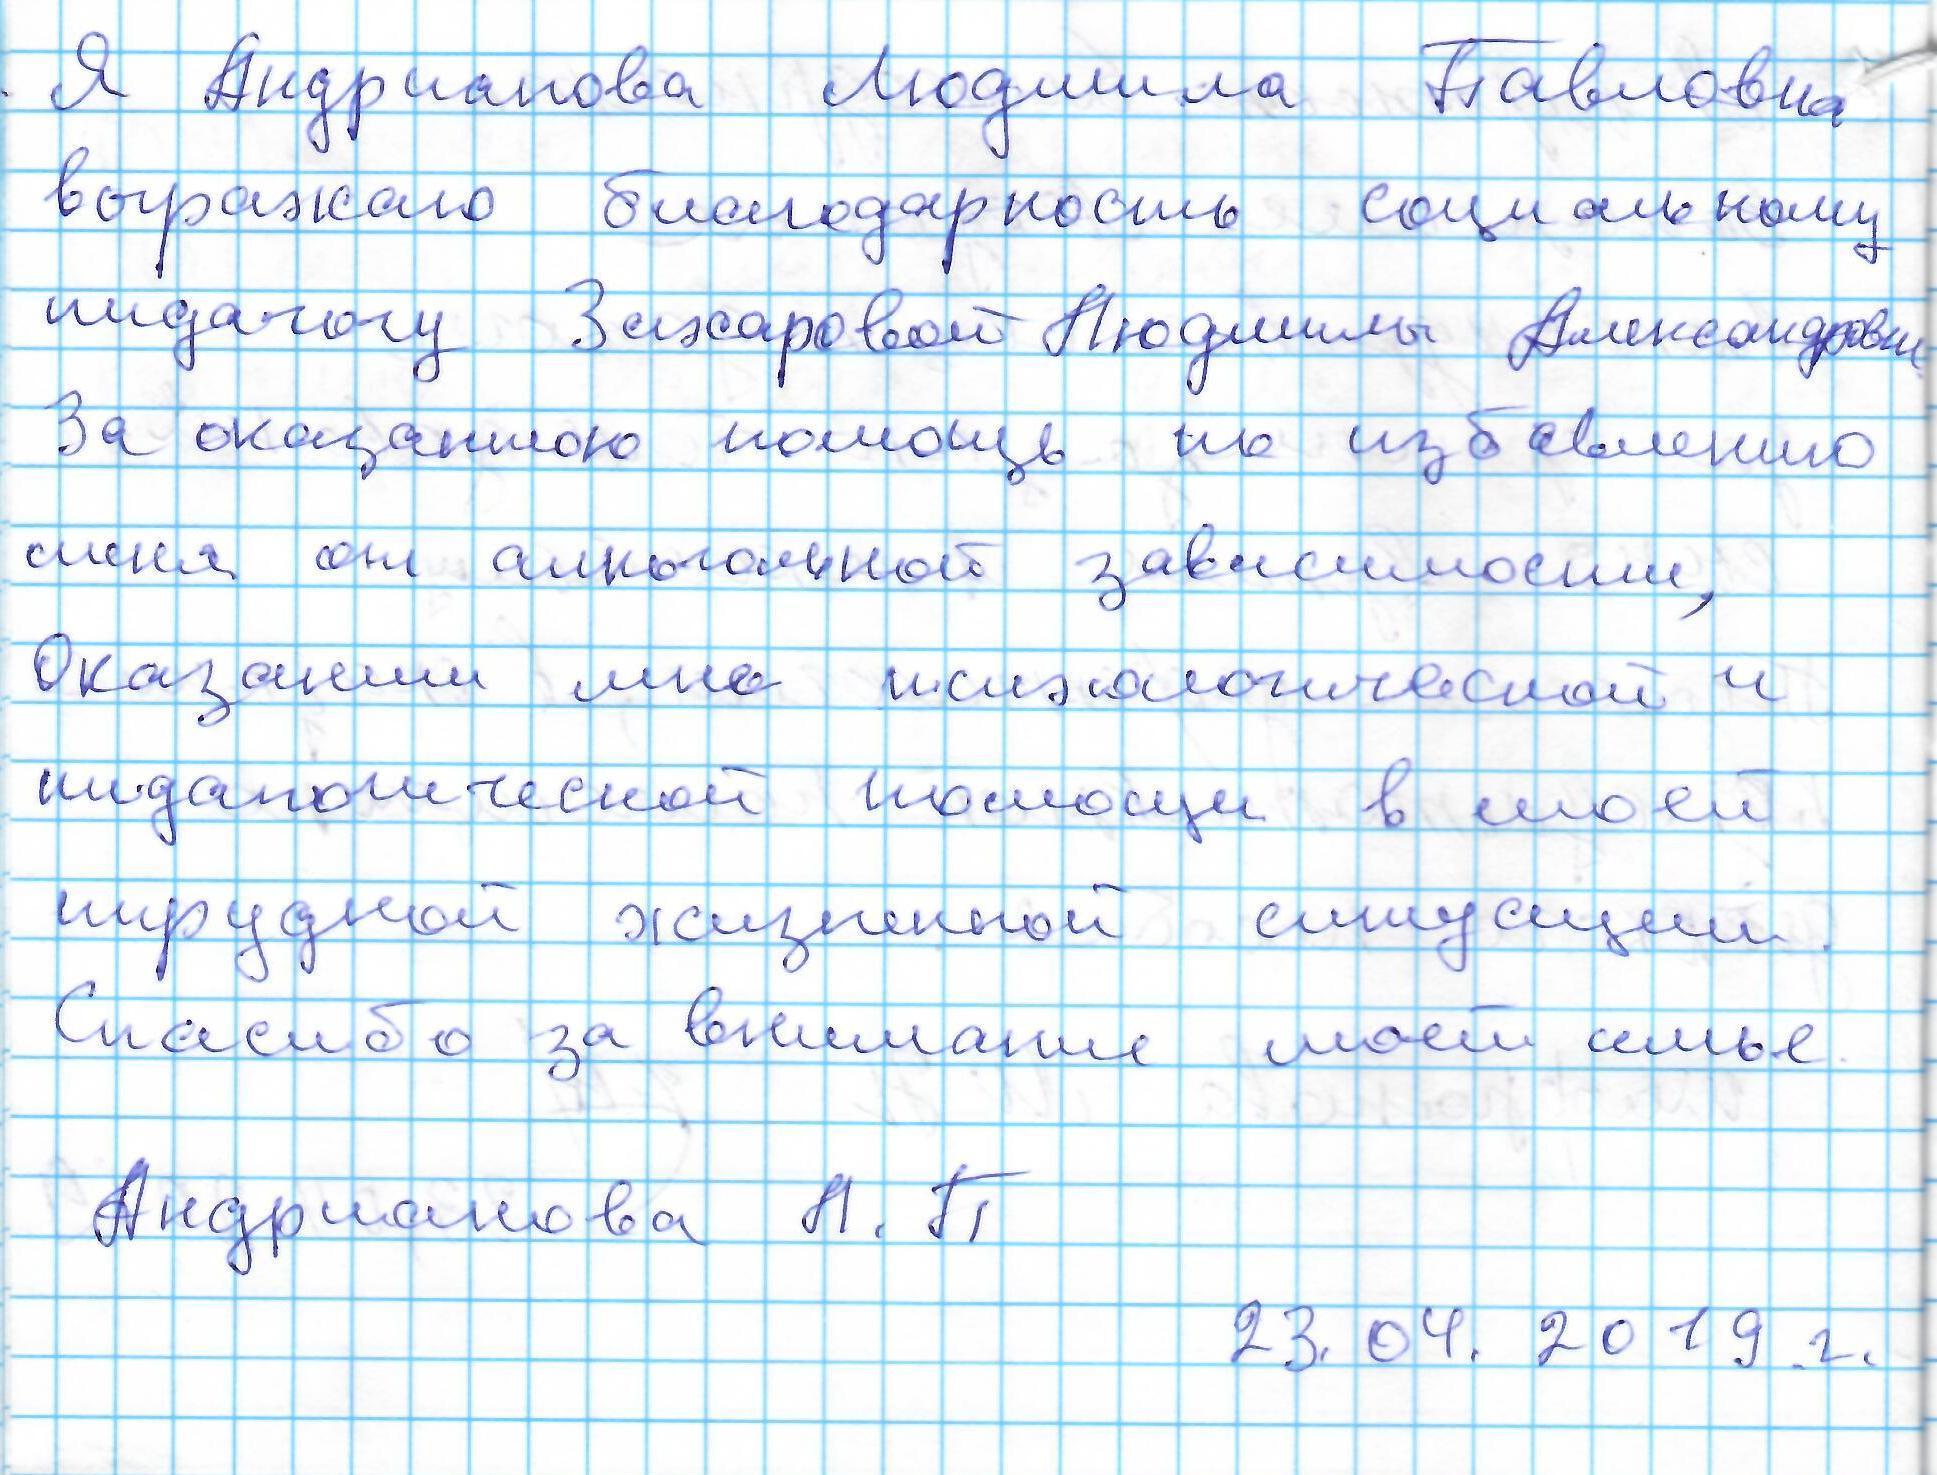 Я Андрианова Людмила Павловна
выражаю благодарность социальному
пидагогу Захаровой Людмилы Александровн
За оказанною помощь по избавлению
меня от алкогольной зависимости,
Оказании мне психологической и
пидагогической помощи в моей
трудной жизненной ситуации.
Спасибо за внимание моей семье.
Андрианова Л. П
23.04.2019 г.